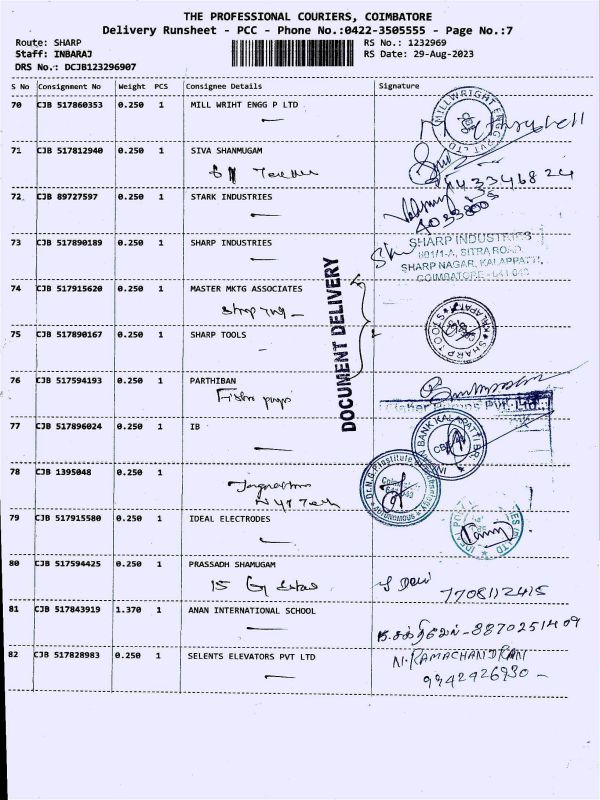 THE PROFESSIONAL COURIERS, COIMBATORE
Delivery Runsheet - PCC - Phone No.:0422-3505555 - Page No.:7
Route: SHARP
RS No.: 1232969
Staff: INBARAJ
RS Date: 29-Aug-2023
DRS No.: DCJB123296907
S No Consignment No Weight PCS Consignee Details Signature
70 CJB 517860353 0.250 1 MILL WRIHT ENGG P LTD
71 CJB 517812940 0.250 1 SIVA SHANMUGAM
72 CJB 89727597 0.250 1 STARK INDUSTRIES
73 CJB 517890189 0.250 1 SHARP INDUSTRIES
SHARP INDUSTRIES
801/1-A, SITRA ROAD,
SHARP NAGAR, KALAPPATTI,
COIMBATORE - 641 048
74 CJB 517915620 0.250 1 MASTER MKTG ASSOCIATES
DOCUMENT DELIVERY
75 CJB 517890167 0.250 1 SHARP TOOLS
SHARP TOOLS
76 CJB 517594193 0.250 1 PARTHIBAN
Pvt. Ltd.
77 CJB 517896024 0.250 1 IB
BANK KALAPATTI
78 CJB 1395048 0.250 1
Dr.N.G.P
Technology
Autonomous
79 CJB 517915580 0.250 1 IDEAL ELECTRODES
80 CJB 517594425 0.250 1 PRASSADH SHAMUGAM
7708112415
81 CJB 517843919 1.370 1 ANAN INTERNATIONAL SCHOOL
8870251409
82 CJB 517828983 0.250 1 SELENTS ELEVATORS PVT LTD
N.RAMACHANDRAN
9942926930 -